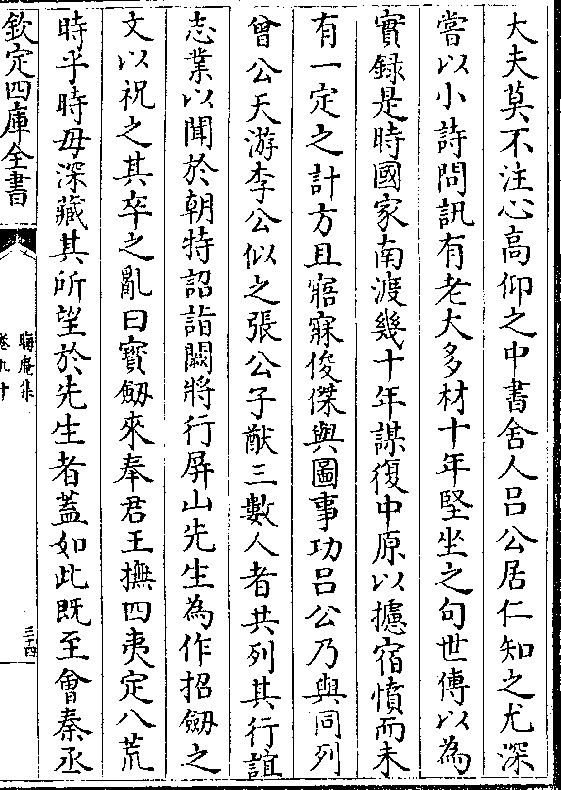 大夫莫不注心高仰之中書舍人吕公居仁知之尤深
嘗以小詩問訊有老大多材十年堅坐之句世傳以為
實録是時國家南渡幾十年謀復中原以攄宿憤而未
有一定之計方且寤寐俊傑與圖事功吕公乃與同列
曾公天游李公似之張公子猷三數人者共列其行誼
志業以聞於朝特詔詣闕將行屏山先生為作招劒之
文以祝之其卒之亂曰寳劒來奉君王撫四夷定八荒
時乎時毋深藏其所望於先生者葢如此既至㑹秦丞
欽定四庫全書
晦庵集
卷九十
三十四